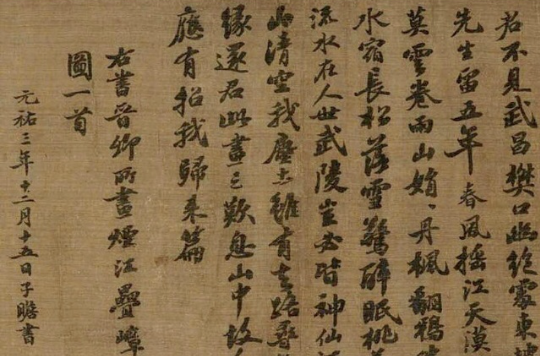 君不見武昌樊口幽絕處東坡
先生留五年春風搖江天漠
莫雲卷雨山娟〻丹楓翻鴉
水宿長松落雪驚醉眠桃
流水在人世武陵豈必皆神仙
山清空我塵土雖有去路尋
緣還君此畫三歎息山中故
應有招我歸來篇
右書晉卿所畫煙江疊嶂
圖一首
元祐三年十二月十五日子瞻書